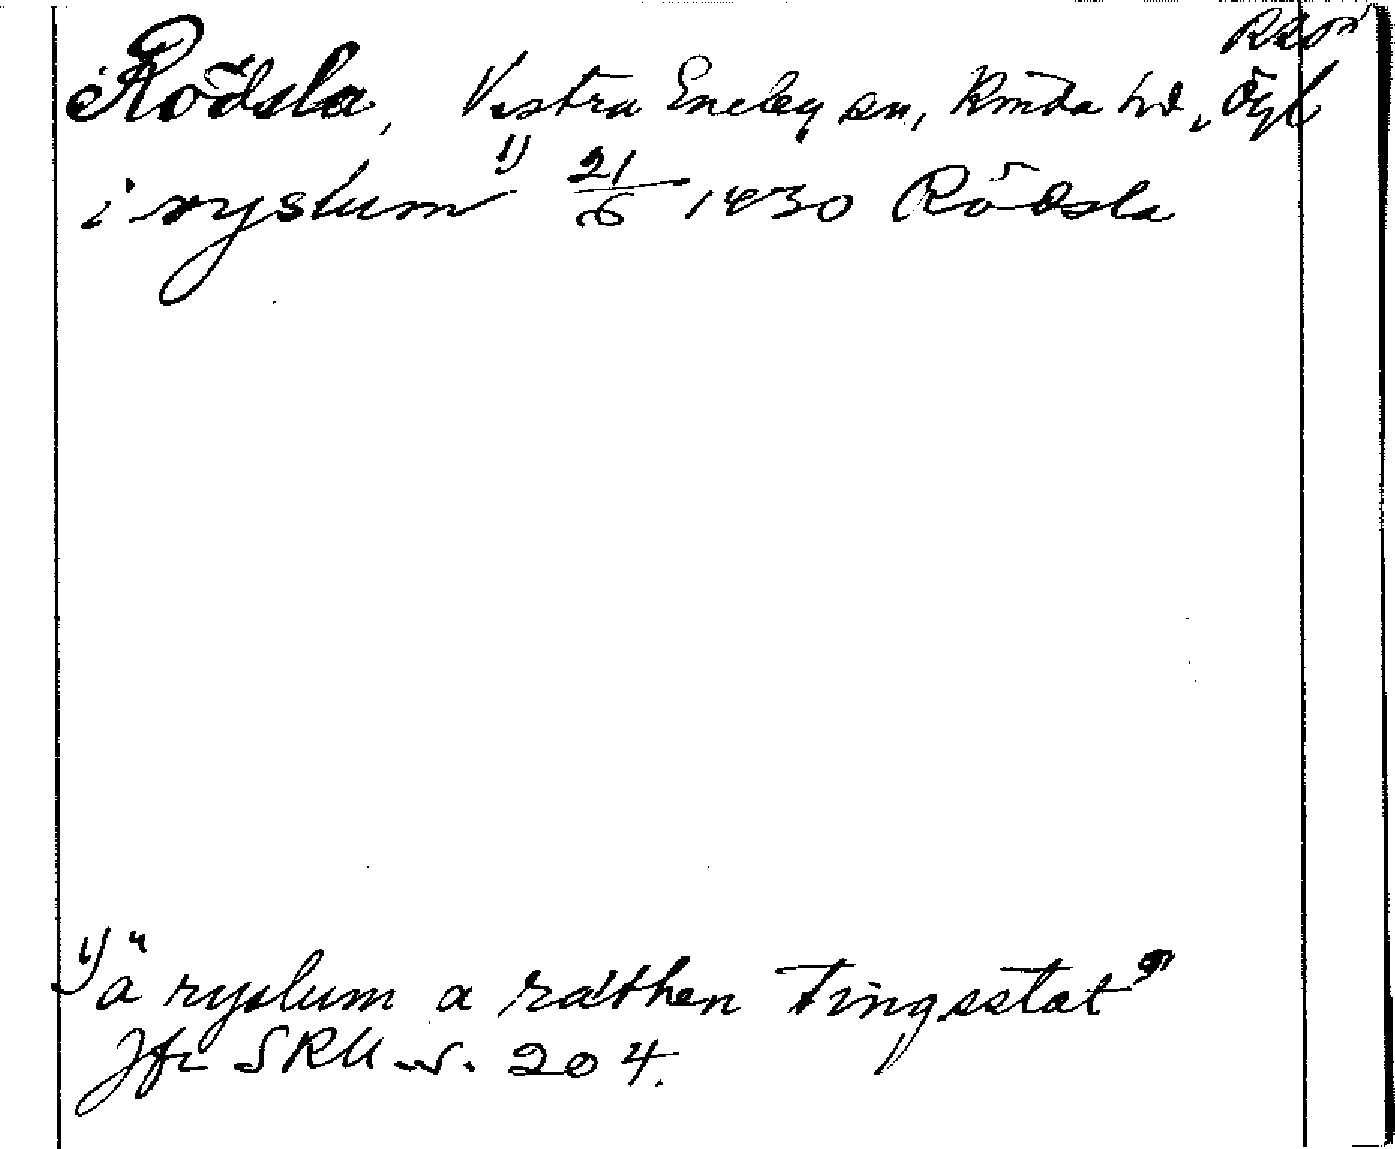 Rödsla, Västra Eneby sn, Kinda hd, Ögl
i ryslum 1) 21/6 1430 Rödsla
1) "a ryslum a räthen Tingsstat"
Jfr SRU s. 204.